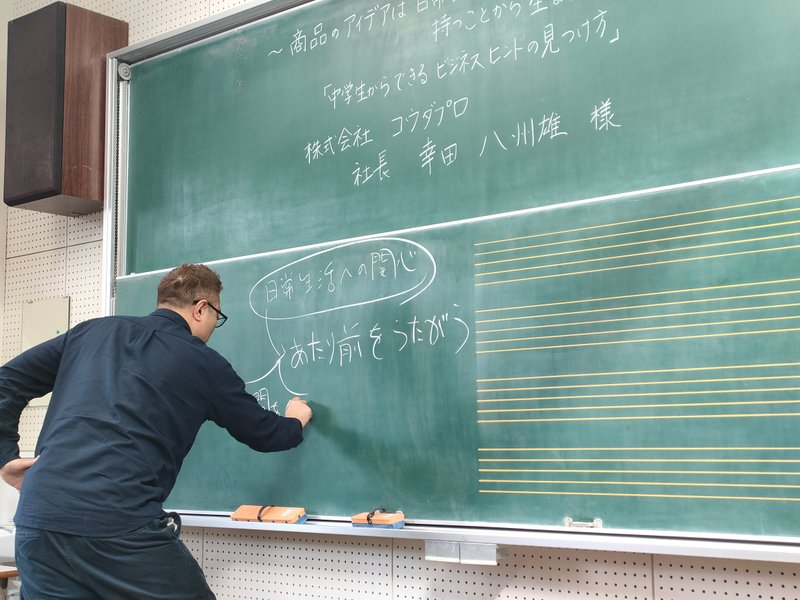 ～商品のアイデアは日常
持つことから生ま
「中学生からできるビジネスヒントの見つけ方」
株式会社 コウダプロ
社長 幸田 八州雄 様
日常生活への関心
あたり前をうたがう